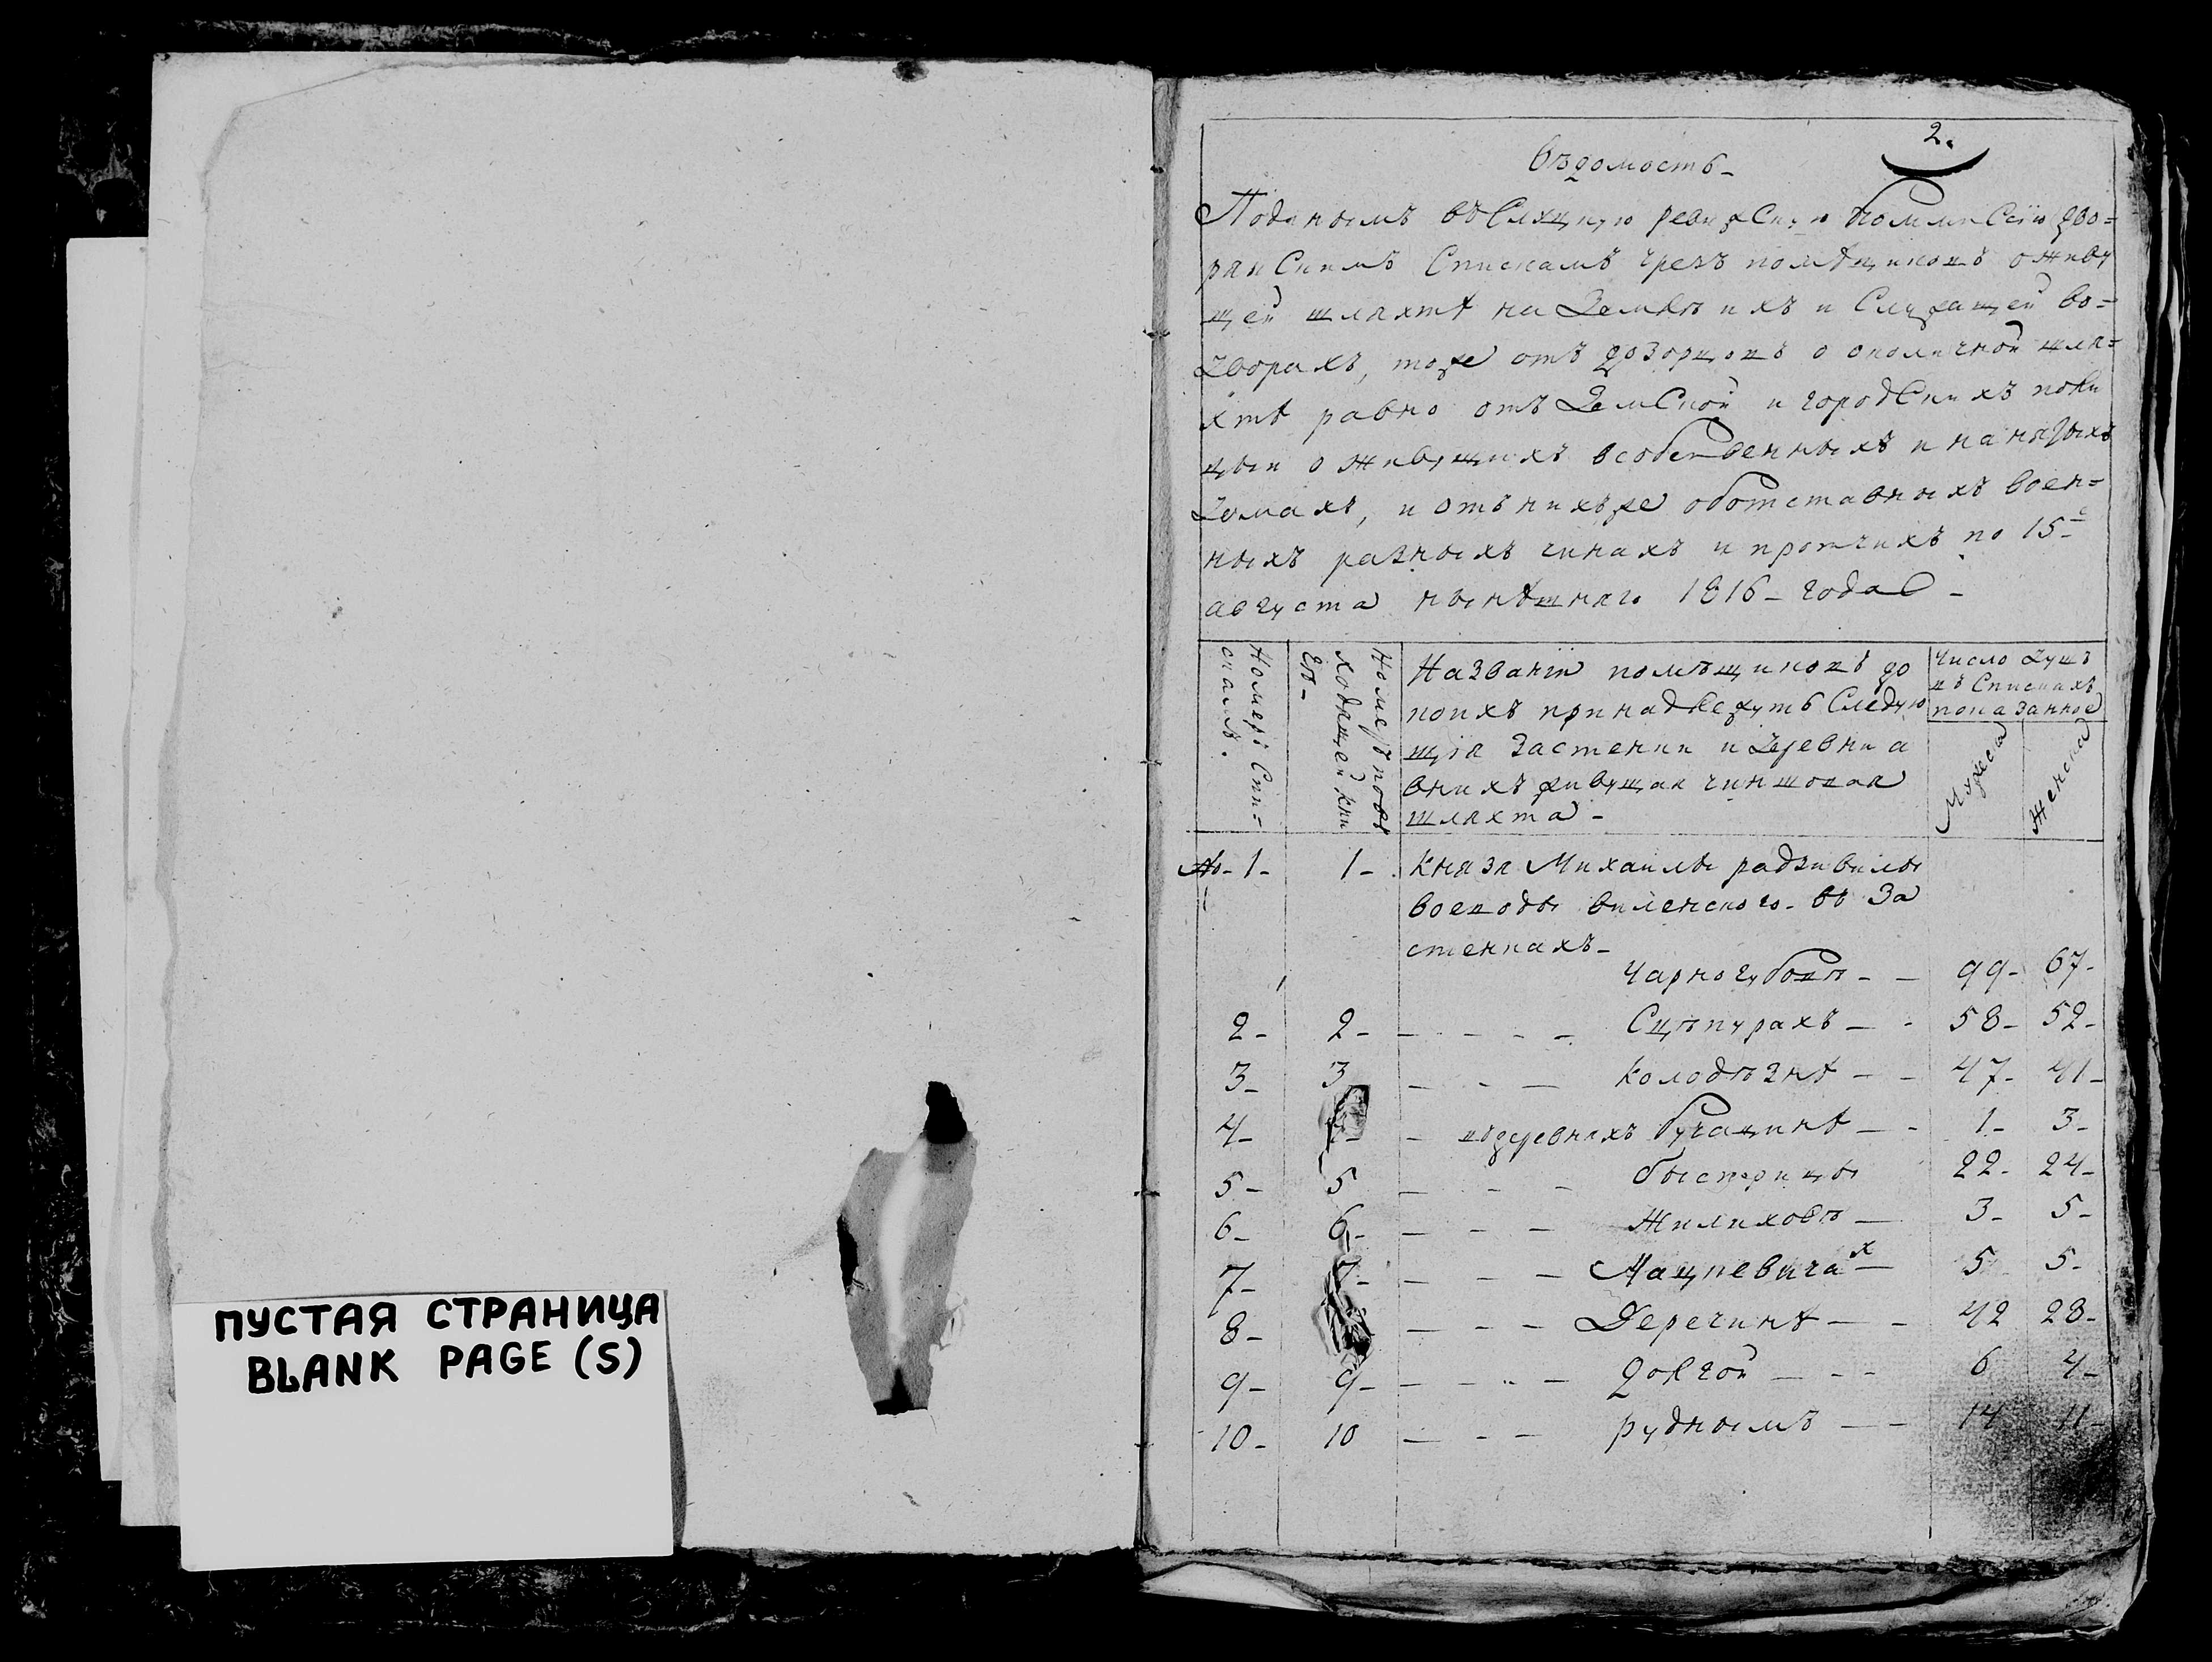 ПУСТАЯ СТРАНИЦА
BLANK PAGE (S)
2.
Вѣдомость
Поданымъ въ Слуцкую ревизскую коммисѣю дво=
рянскимъ спискамъ чрезъ помѣщиковъ о живу
щей шляхтѣ на землѣ ихъ и служащей во=
дворахъ, тоже отъ дозорцовъ о околичной шля=
хтѣ равно отъ земской и городскихъ поли
цыи о живущихъ в собственныхъ и нанятыхъ
домахъ, и отъ нихъ же об отставныхъ воен=
ныхъ разныхъ чинахъ и протчихъ по 15е
августа нынѣшняго 1816 - года -
Номеръ спи=
скамъ.
Номеръ повѣ
ходящей кни
гѣ -
Названіи помѣщиковъ до
коихъ принадлежутъ следую
щія застенки и деревни а
в нихъ живущая чиншовая
шляхта -
Число душъ
въ спискахъ
показанное
Мужеска
Женска
№ 1 - 1 - Князя Михаилы радзивилы
воеводы виленского - въ за
стенкахъ -
Чарногубовѣ - - 99 - 67 -
2 - 2 - - - - - Сцѣпурахъ - - 58 - 52 -
3 - 3 - - - Колодѣзнѣ - - 47 - 41 -
4 - - въ деревняхъ Бучатинѣ - - 1 - 3 -
5 - 5 - - - быстрицы 22 - 24 -
6 - 6 - - - - Жилиховѣ - 3 - 5 -
7 - 7 - - - - Мацкевичах - 5 5 -
8 - - - - Деречинѣ - - 42 28 -
9 - 9 - - - - - Долгой - - - 6 4 -
10 - 10 - - - руднымъ - - 14 11 -